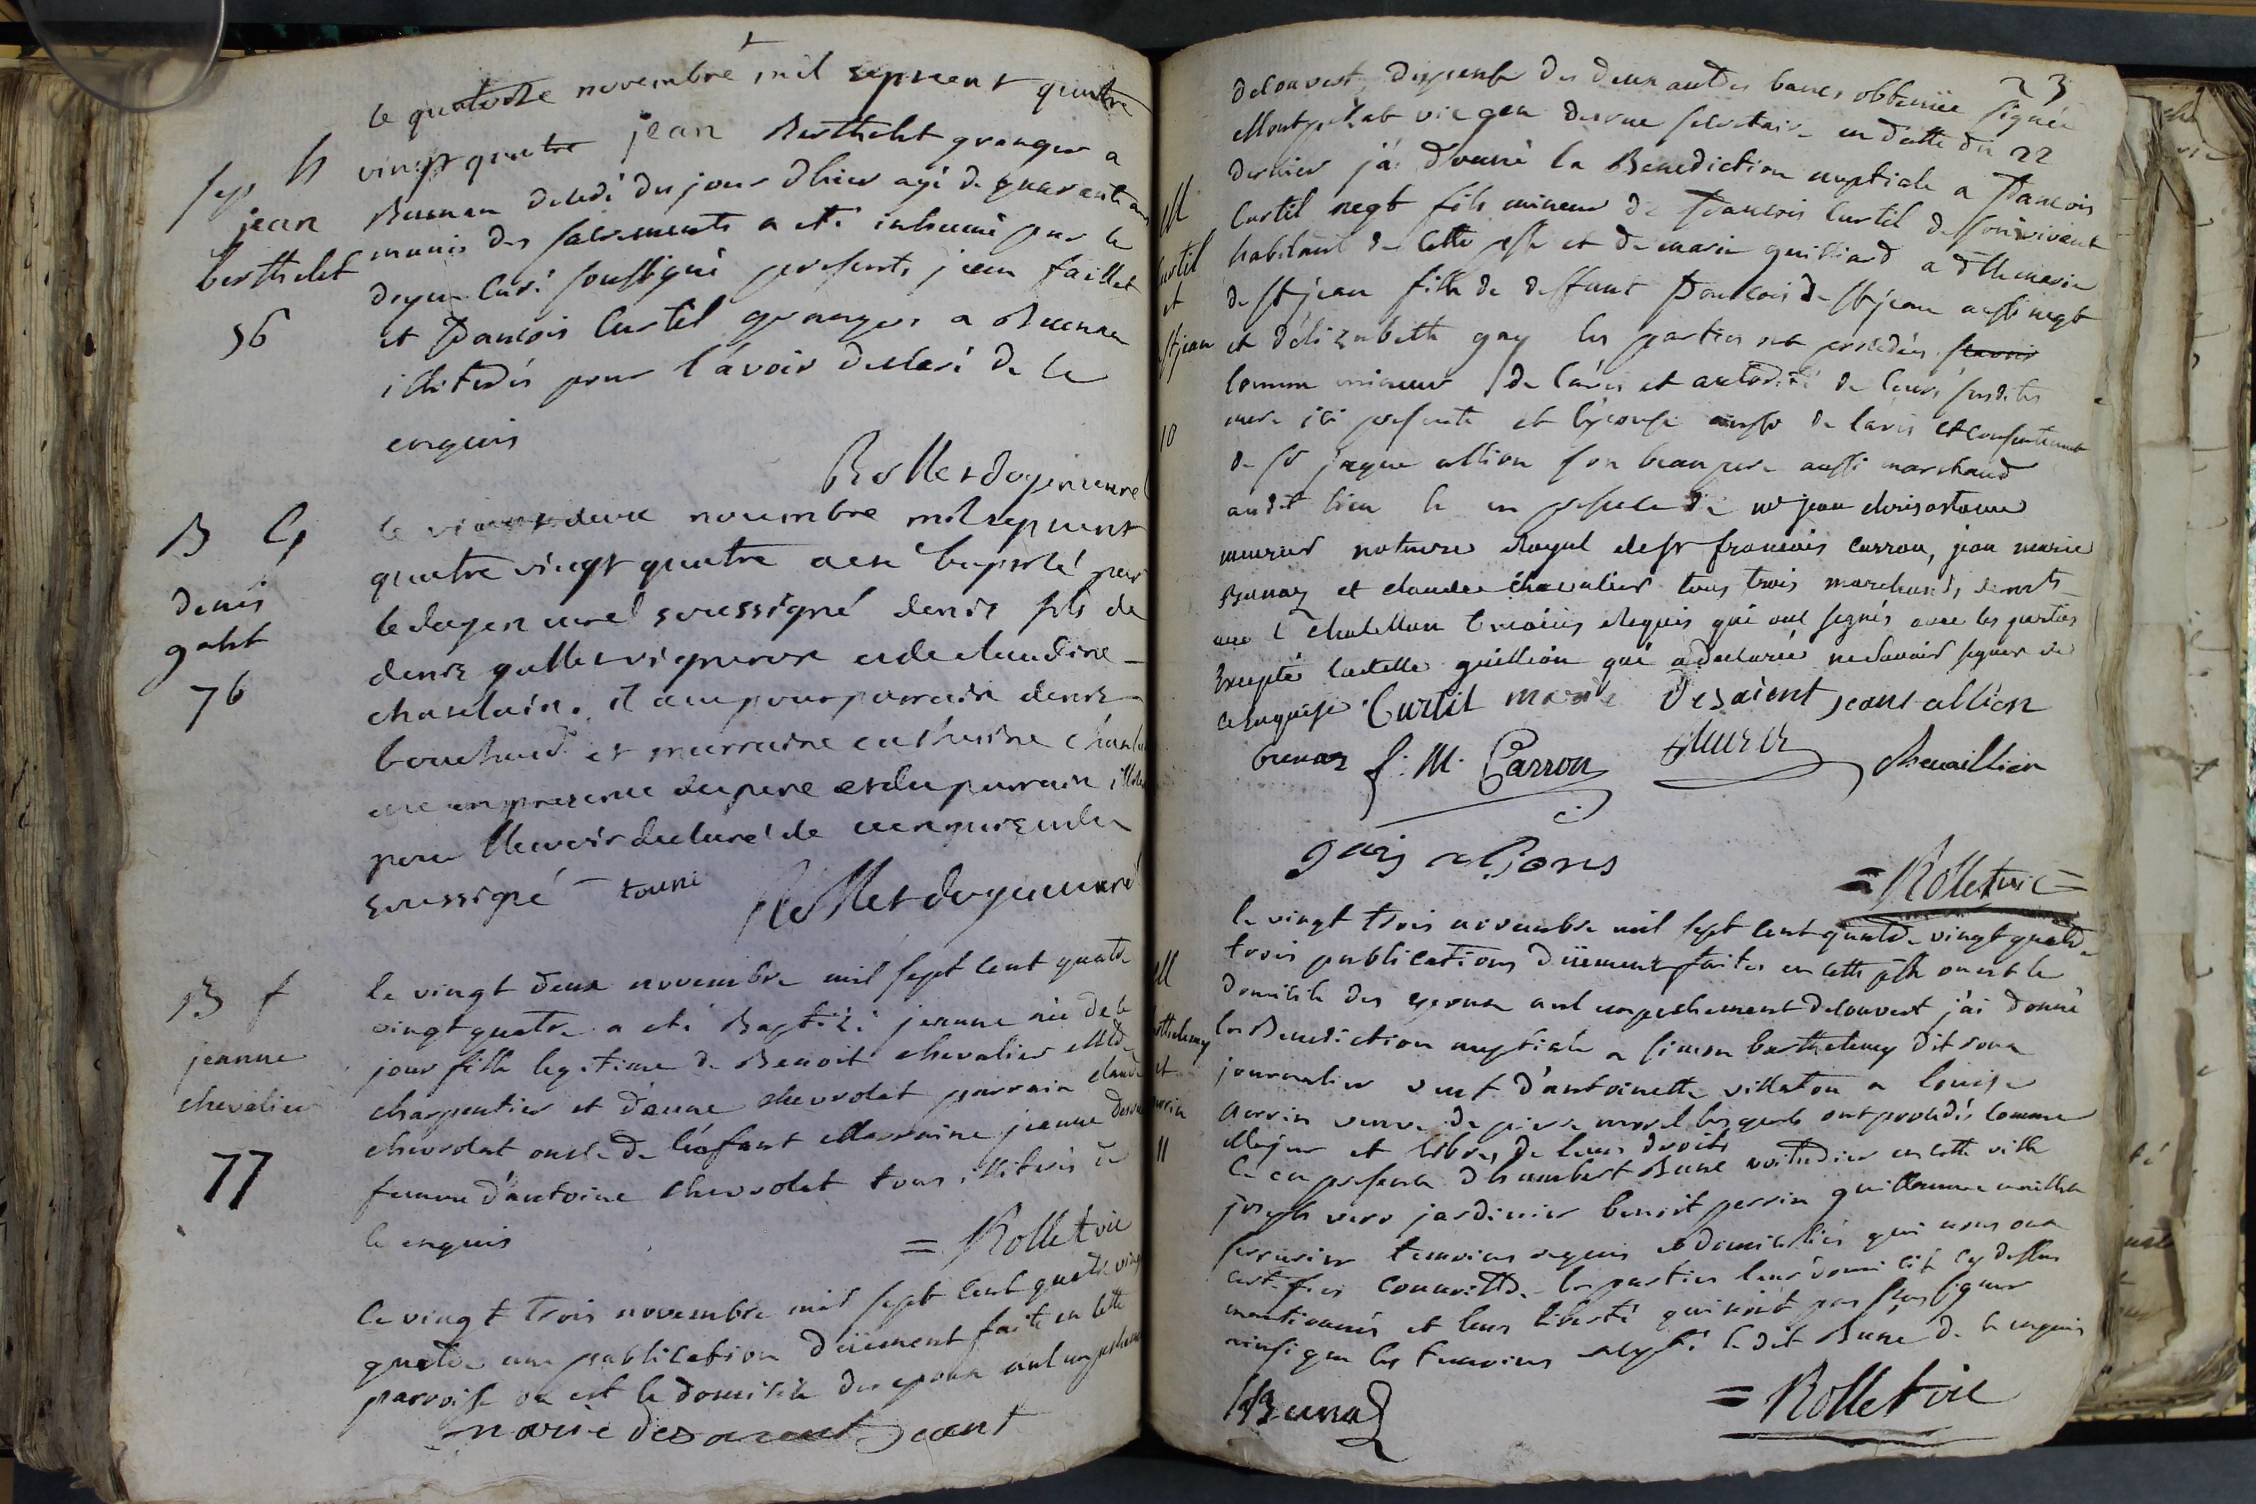 le quatorze novembre mil sept cent quatre
vingt quatre jean Berthelet granger a
Bunan decedé du jour dhier agé de quarante ans
munis des sacrements a eté inhumé par le
doyen curé soussigné presents jean faillet
et francois Curtil grangers a Bunan
illiterés pour l'avoir declaré de ce
enquis
Rollet doyen curé
sep h
jean
berthelet
56
le vingt deux novembre mil sept cent
quatre vingt quatre a esté baptisé par
le doyen curé soussigné denis fils de
denis gallet vigneron et de claudine
chatelain. il a eu pour parrain denis
bouchard et marraine catherine
en presence du pere et du parrain
pour l'avoir declaré de ce enquis
soussigné
Rollet doyen curé
B G
denis
galet
76
le vingt deux novembre mil sept cent quatre
vingt quatre a eté Baptizé jeanne née de ce
jour fille legitime de Benoit chevalier Mtre
charpentier et d'anne chevrolat parrain claude
chevrolat oncle de l'enfant Marraine jeanne
femme d'antoine chevrolat tous illiterés de
ce enquis
= Rollet vic
B f
jeanne
chevalier
77
Ce vingt trois novembre mil sept cent quatre vingt
quatre une publication düement faite en cette
parroisse ou est le domicile des epoux nul empechement
marie desaint jeant
23
decouvert, dispense des deux autres bancs obtenüe signée
Montgelat vic gen secretaire en datte du 22
dernier j'ai donné la Benediction nuptiale a francois
Curtil negt fils mineur de francois Curtil de son vivant
habitant de cette psse et de marie guilliard a dlle marie
de st jean fille de deffunt francois de st jean aussi negt
et d'elizabeth gay les parties ont procédées
comme mineurs de l'avis et autorité de leurs susdites
mere ici presente et l'épouse aussi de l'avis et consentement
de sr jaque allion son beau pere aussi marchand
audit lieu le en presence de mr jean chrisostome
meurier notaire Royal de sr francois carron, jean marie
Bunaz et claude chevalier tous trois marchands, demts
a Chatillon témoins Requis qui ont signés avec les parties
Excepté laditte guillion qui a declarée ne savoir signer de
ce enquise Curtil marie desaient jeant allion
bunaz f: M. Carron Murier Chevaillier
gaiz a Pons
= Rollet vic =
M
Curtil
et
st jean
10
le vingt trois novembre mil sept cent quatre vingt quatre
trois publications düement faites en cette psse ou est le
domicile des epoux nul empechement decouvert j'ai donné
la Benediction nuptiale a simon barthelemy dit
journalier veuf d'antoinette villaton a louise
perrin veuve de pierre morel lesquels ont procedés comme
Majeur et libres de leurs droits
Ce en presence d'humbert Bune voiturier en cette ville
joseph vero jardinier benoit perrin guillaume
serrurier temoins requis et domiciliés qui nous ont
certifiés connoitre les parties leur domicile cy dessus
mentionnés et leur liberté qui n'ont pas sçu signer
ainsi que les temoins excepté le dit Bune de ce enquis
HBuna
= Rollet vic
M
barthelemy
et
perrin
11